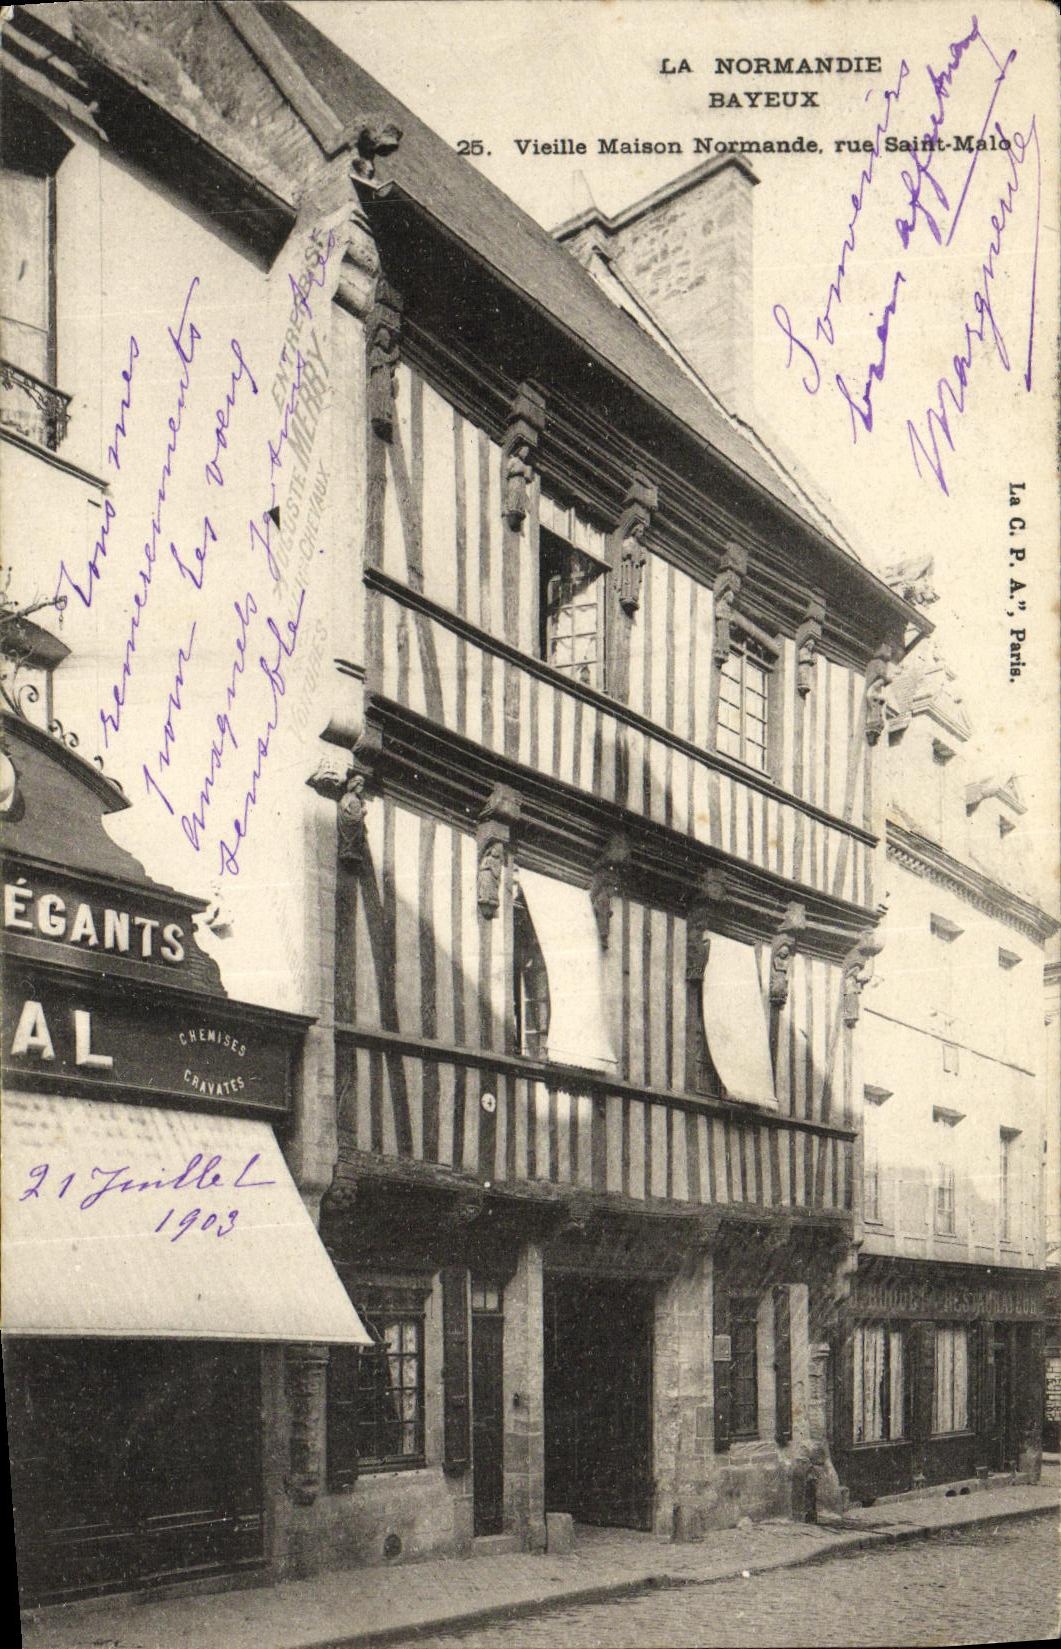 LA NORMANDIE
BAYEUX
25. Vieille Maison Normande, rue Saint-Malo
Souvenirs
bien affectueux
Marguerite
La C. P. A.", Paris.
Tous mes
remerciements
pour les voeux
auxquels je suis très
sensible
ENTREPRISE
AUGUSTE MERRY
CHEVAUX
VOITURES
ÉGANTS
AL
CHEMISES
CRAVATES
21 Juillet
1903
RESTAURATEUR